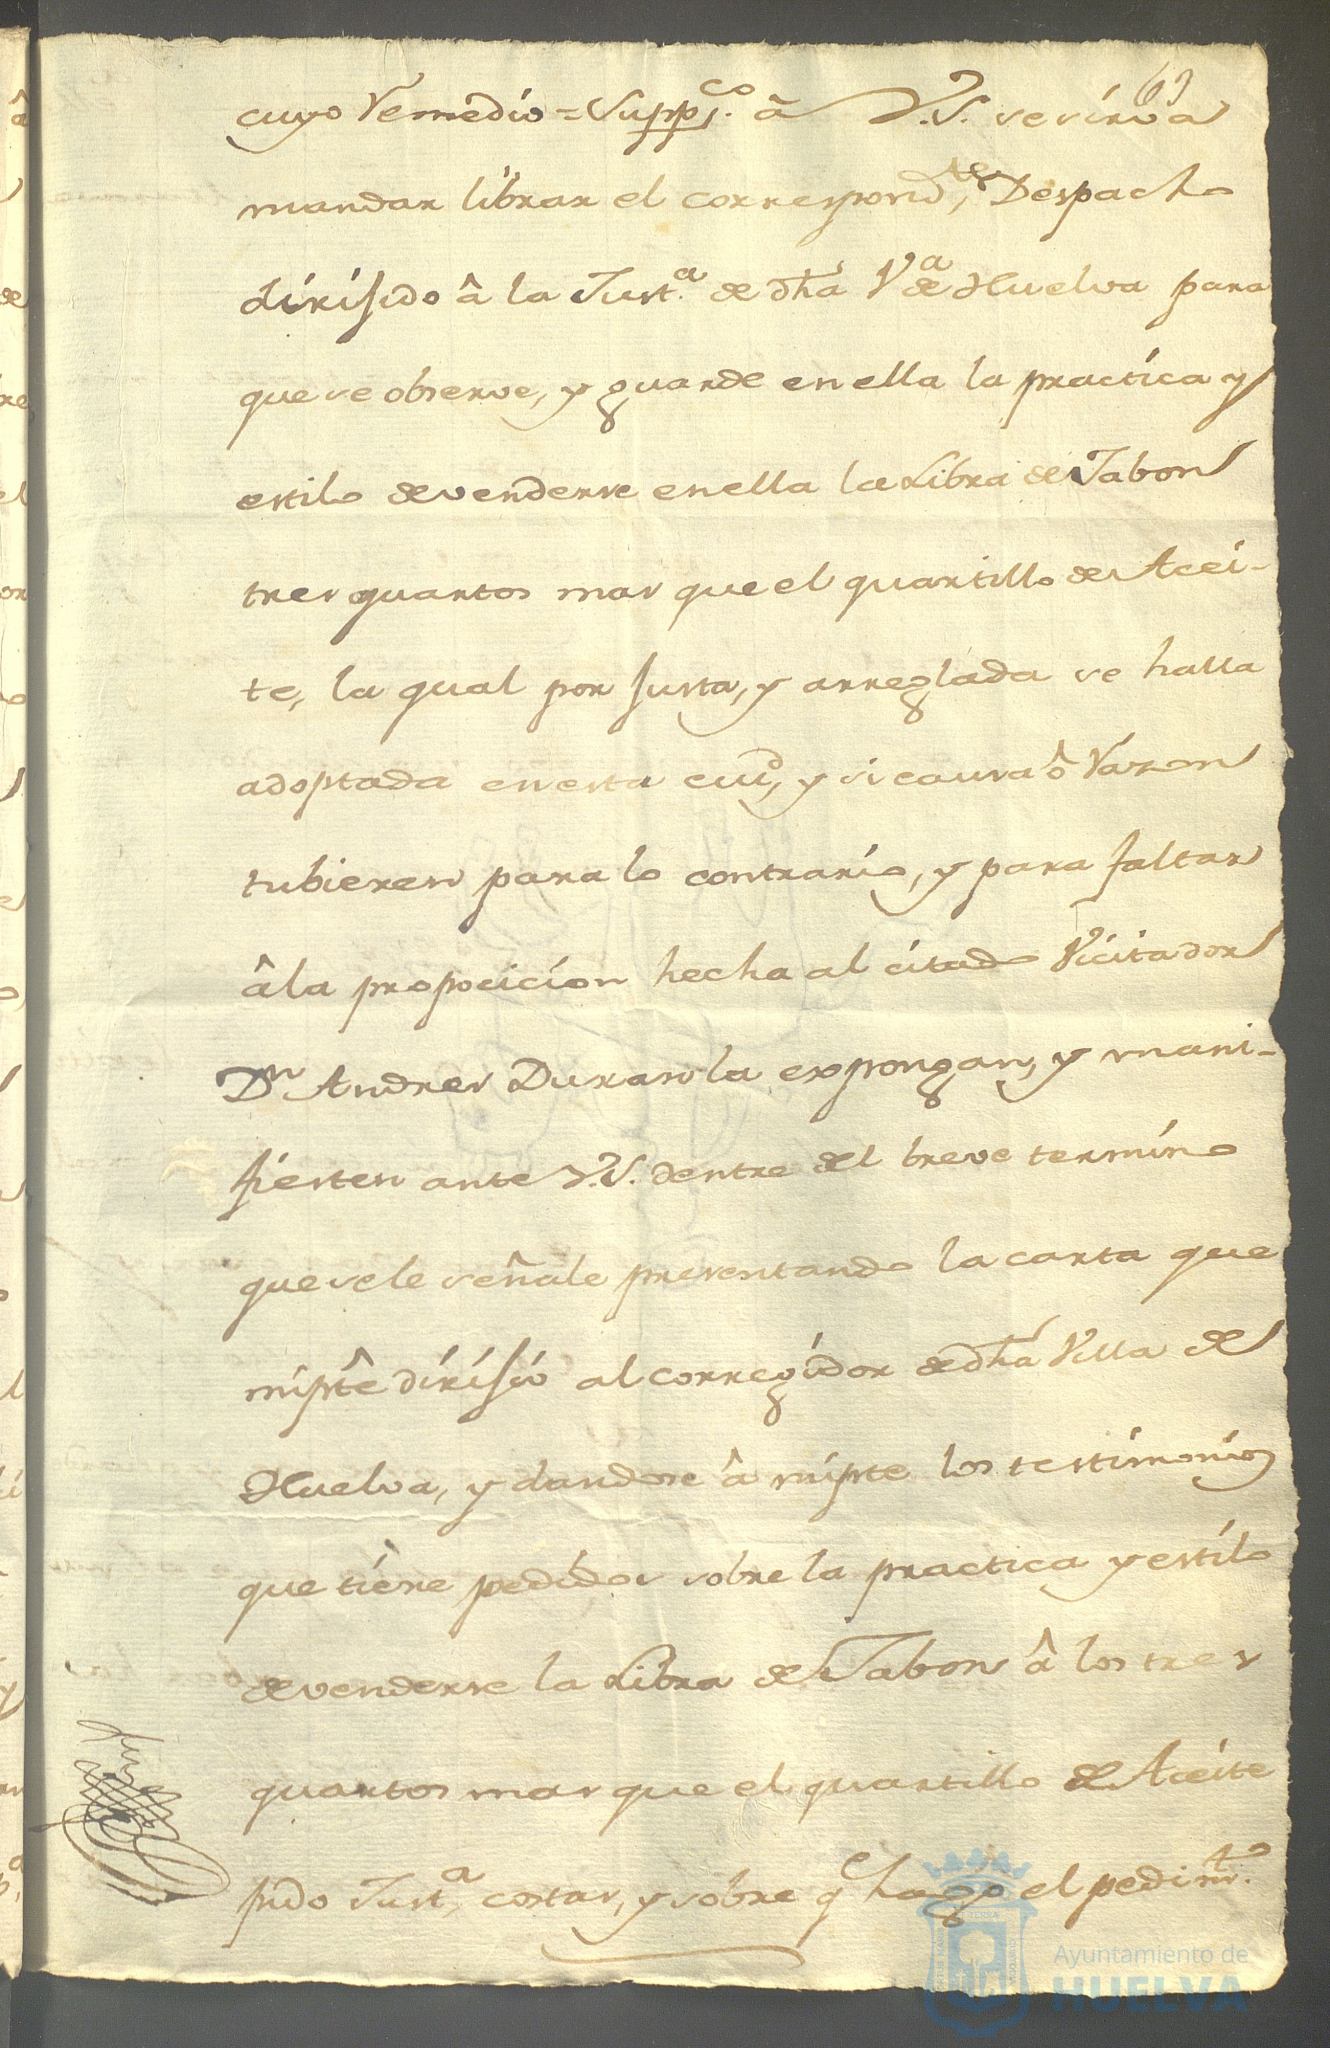 63
cuyo Remedio = Supp.co â V.S. se sirva
mandar librar el correspond.te Despacho
dirijido â la Just.a de dha V.a de Huelva para
que se observe, y guarde en ella la practica y
estilo de venderse en ella la Libra de Jabon
tres quartos mas que el quartillo de Acei-
te, la qual por justa, y arreglada se halla
adoptada en esta ciud, y si causa ô Razon
tubieren para lo contrario, y para faltar
â la proposicion hecha al citado Vicitador
Dn Andres Duran la expongan, y mani-
fiesten ante V.S. dentre del breve termino
que se le señale presentando la carta que
mi pte dirijio al corregidor de dha Villa de
Huelva, y dandose â mi pte los testimonios
que tiene pedidos sobre la practica y estilo
de venderse la Libra de Jabon â los tres
quartos mas que el quartillo de Aceite
pido Just.a, costas, y sobre q hago el pedim.to
Ayuntamiento de
HUELVA